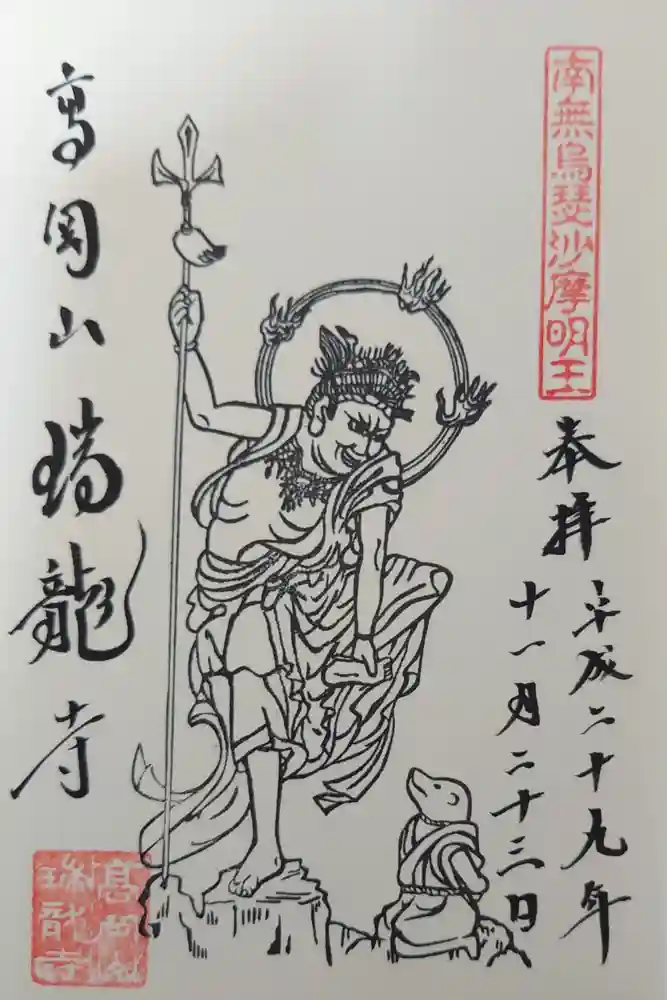 南無烏瑟沙摩明王
奉拝
平成二十九年
十一月二十三日
高岡山 瑞龍寺
高岡山
瑞龍寺